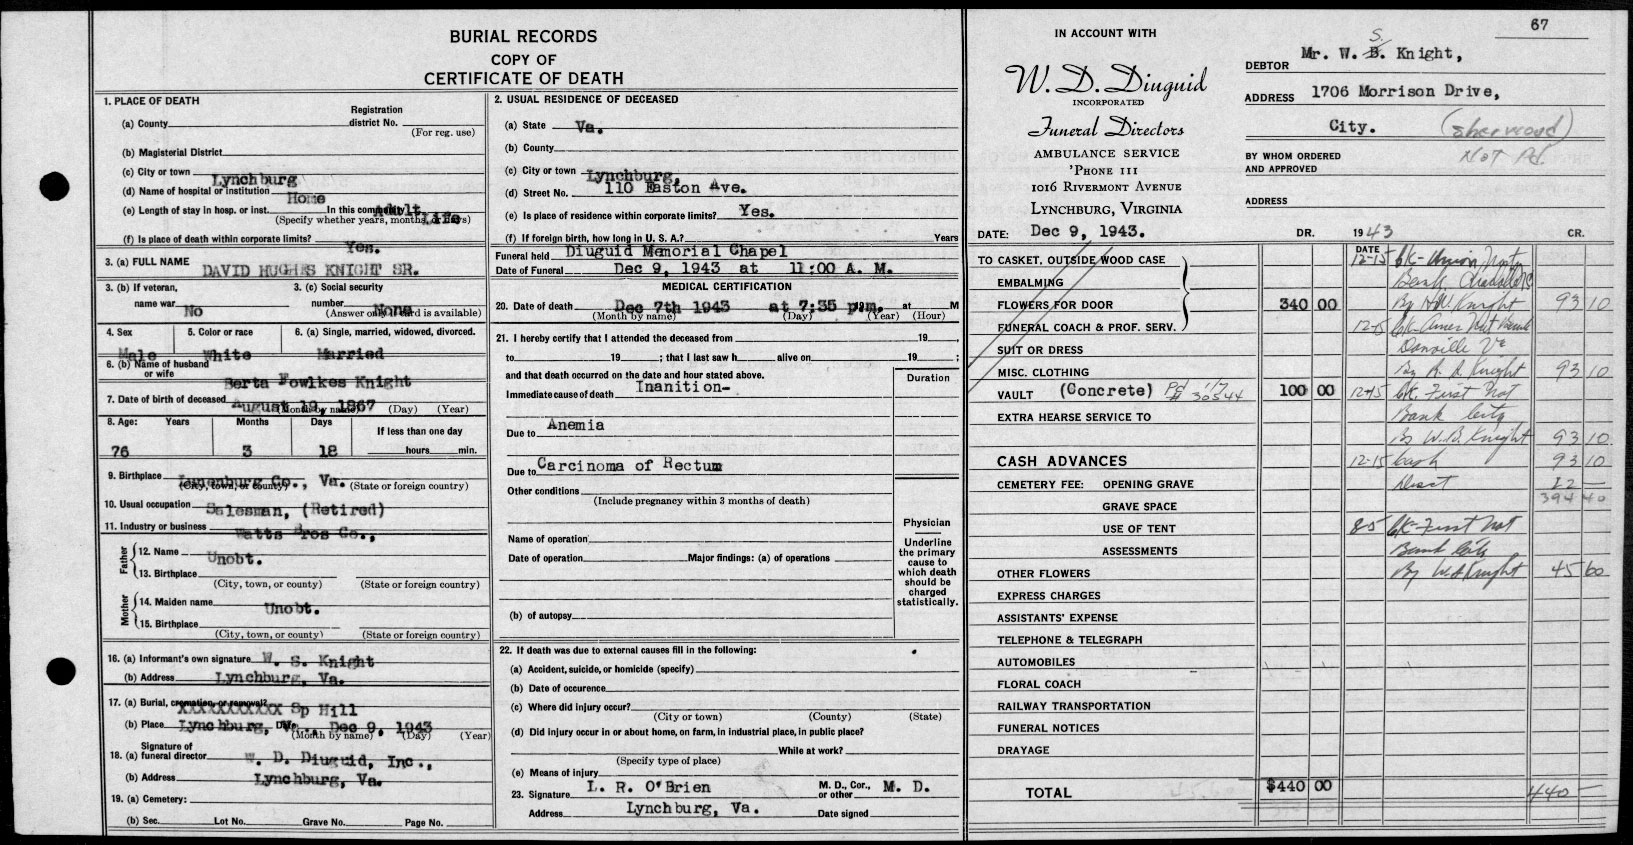 BURIAL RECORDS
COPY OF
CERTIFICATE OF DEATH
1. PLACE OF DEATH
Registration
(a) County district No.
(For reg. use)
(b) Magisterial District
(c) City or town Lynchburg
(d) Name of hospital or institution Home
(e) Length of stay in hosp. or inst. In this community Adult Life
(Specify whether years, months, or days)
(f) Is place of death within corporate limits? Yes.
3. (a) FULL NAME DAVID HUGHES KNIGHT SR.
3. (b) If veteran, 3. (c) Social security
name war No number None
(Answer only if card is available)
4. Sex 5. Color or race 6. (a) Single, married, widowed, divorced.
Male White Married
6. (b) Name of husband
or wife Berta Fowlkes Knight
7. Date of birth of deceased August 19, 1867
(Month by name) (Day) (Year)
8. Age: Years Months Days If less than one day
76 3 18 hours min.
9. Birthplace Lunenburg Co., Va.
(City, town, or county) (State or foreign country)
10. Usual occupation Salesman, (Retired)
11. Industry or business Watts Bros Co.,
Father
12. Name Unobt.
13. Birthplace
(City, town, or county) (State or foreign country)
Mother
14. Maiden name Unobt.
15. Birthplace
(City, town, or county) (State or foreign country)
16. (a) Informant's own signature W. S. Knight
(b) Address Lynchburg, Va.
17. (a) Burial, cremation, or removal? XXXXXXXXXXX Sp Hill
(b) Place Lynchburg, Va., Dec 9, 1943
(Month by name) (Day) (Year)
Signature of
18. (a) funeral director W. D. Diuguid, Inc.,
(b) Address Lynchburg, Va.
19. (a) Cemetery:
(b) Sec. Lot No. Grave No. Page No.
2. USUAL RESIDENCE OF DECEASED
(a) State Va.
(b) County
(c) City or town Lynchburg,
(d) Street No. 110 Easton Ave.
(e) Is place of residence within corporate limits? Yes.
(f) If foreign birth, how long in U. S. A.? Years
Funeral held Diuguid Memorial Chapel
Date of Funeral Dec 9, 1943 at 11:00 A. M.
MEDICAL CERTIFICATION
20. Date of death Dec 7th 1943 at 7:35 p.m. at M
(Month by name) (Day) (Year) (Hour)
21. I hereby certify that I attended the deceased from 19 ,
to 19 ; that I last saw h alive on 19 ;
and that death occurred on the date and hour stated above. Duration
Immediate cause of death Inanition-
Due to Anemia
Due to Carcinoma of Rectum
Other conditions
(Include pregnancy within 3 months of death)
Name of operation
Date of operation Major findings: (a) of operations
(b) of autopsy
Physician
Underline
the primary
cause to
which death
should be
charged
statistically.
22. If death was due to external causes fill in the following:
(a) Accident, suicide, or homicide (specify)
(b) Date of occurence
(c) Where did injury occur?
(City or town) (County) (State)
(d) Did injury occur in or about home, on farm, in industrial place, in public place?
While at work?
(Specify type of place)
(e) Means of injury
23. Signature L. R. O'Brien M. D., Cor., or other M. D.
Address Lynchburg, Va. Date signed
67
IN ACCOUNT WITH
W. D. Diuguid
INCORPORATED
Funeral Directors
AMBULANCE SERVICE
'PHONE 111
1016 RIVERMONT AVENUE
LYNCHBURG, VIRGINIA
DATE: Dec 9, 1943.
S.
DEBTOR Mr. W. B. Knight,
ADDRESS 1706 Morrison Drive,
City. (Sherwood)
Not Pd.
BY WHOM ORDERED
AND APPROVED
ADDRESS
DR. 1943 CR.
DATE
TO CASKET, OUTSIDE WOOD CASE
EMBALMING
FLOWERS FOR DOOR 340 00
FUNERAL COACH & PROF. SERV.
SUIT OR DRESS
MISC. CLOTHING
VAULT (Concrete) 100 00
EXTRA HEARSE SERVICE TO
CASH ADVANCES
CEMETERY FEE: OPENING GRAVE
GRAVE SPACE
USE OF TENT
ASSESSMENTS
OTHER FLOWERS
EXPRESS CHARGES
ASSISTANTS' EXPENSE
TELEPHONE & TELEGRAPH
AUTOMOBILES
FLORAL COACH
RAILWAY TRANSPORTATION
FUNERAL NOTICES
DRAYAGE
TOTAL $440 00
12-15 Ck-Union
Knight 93 10
12-15 Ck-Amer Nat Bank
Danville Va
Knight 93 10
12-15 Ck. First Nat
Bank City
By W.B. Knight 93 10
12-15 Cash 93 10
Disct 22 —
394 40
8-5 Ck-First Nat
Bank City
By W S Knight 45 60
440 —